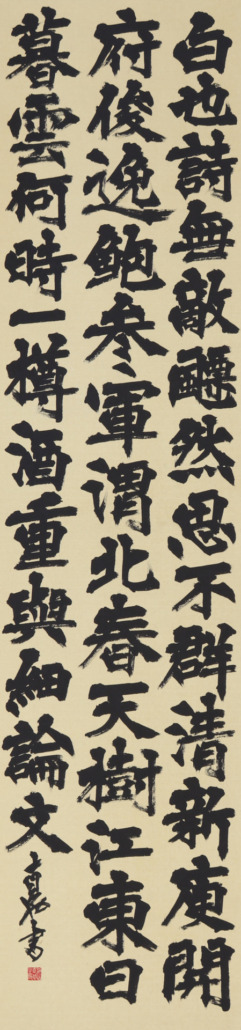 白也詩無敵飄然思不群清新庾開
府俊逸鮑参軍渭北春天樹江東日
暮雲何時一樽酒重與細論文
書